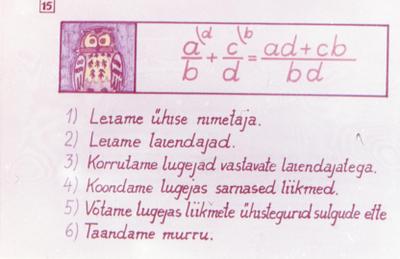 15
a/b \d + c/d \b = ad+cb/bd
1) Leiame ühise nimetaja.
2) Leiame laiendajad.
3) Korrutame lugejad vastavate laiendajatega.
4) Koondame lugejas sarnased liikmed.
5) Võtame lugejas liikmete ühistegurid sulgude ette
6) Taandame murru.